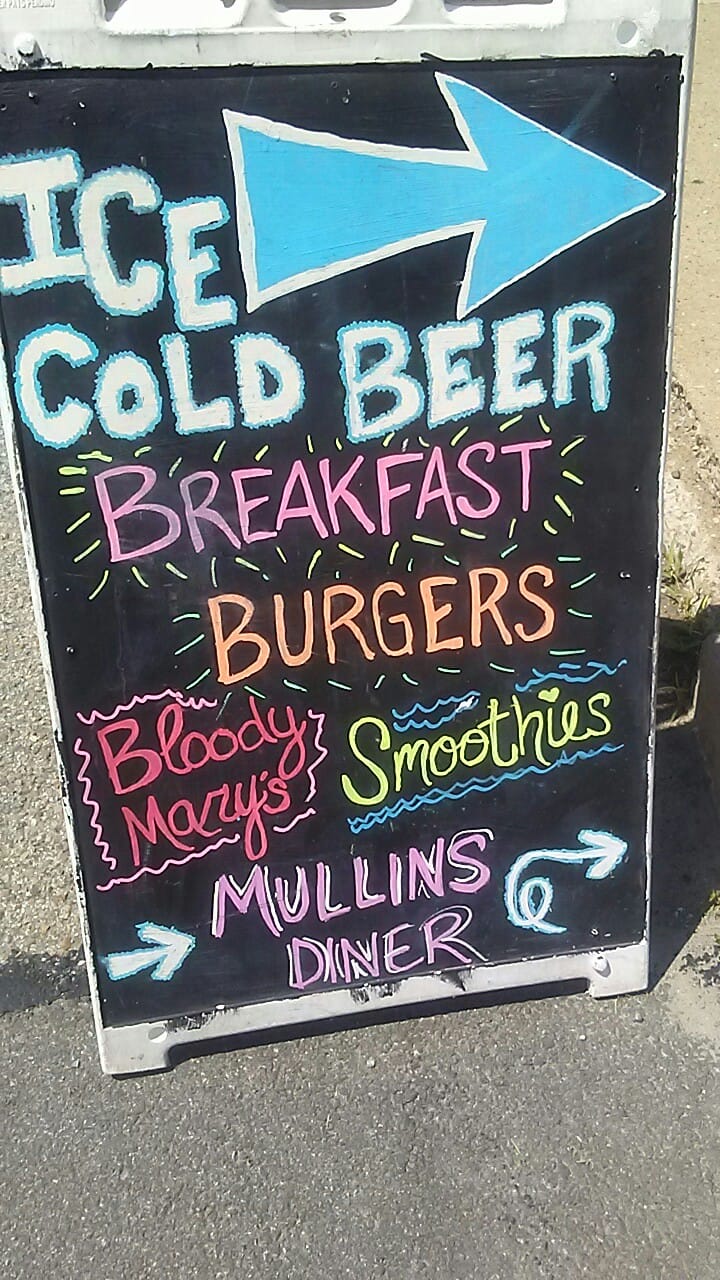 ICE
COLD BEER
BREAKFAST
BURGERS
Bloody
Mary's
Smoothies
MULLINS
DINER